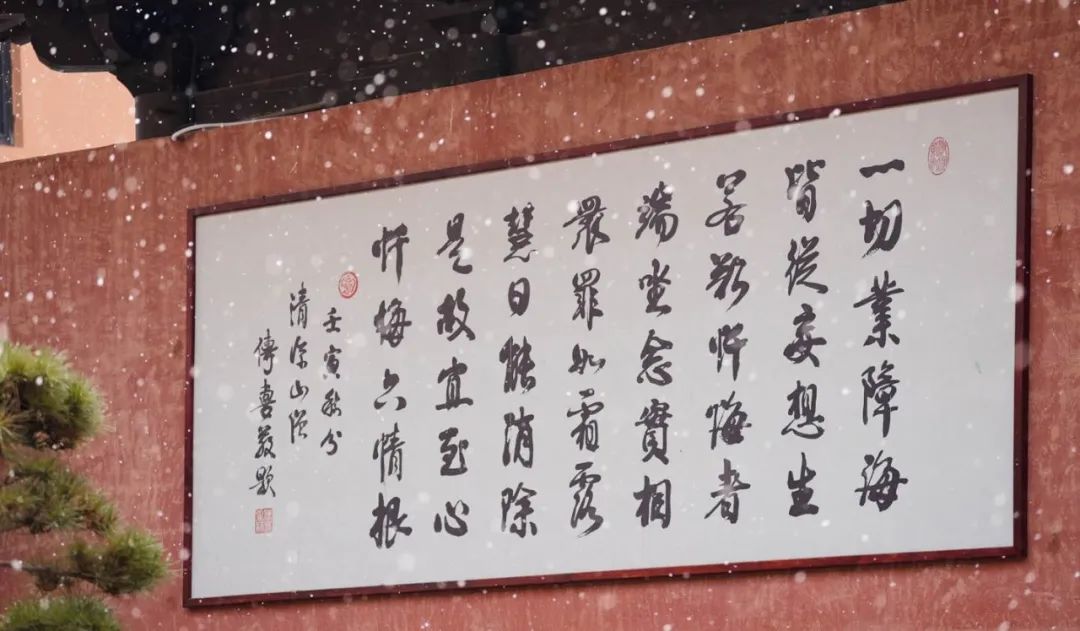 一切業障海
皆從妄想生
若欲忏悔者
端坐念實相
眾罪如霜露
慧日能消除
是故宜至心
忏悔六情根
壬寅秋分
清涼山沙
傳喜敬題